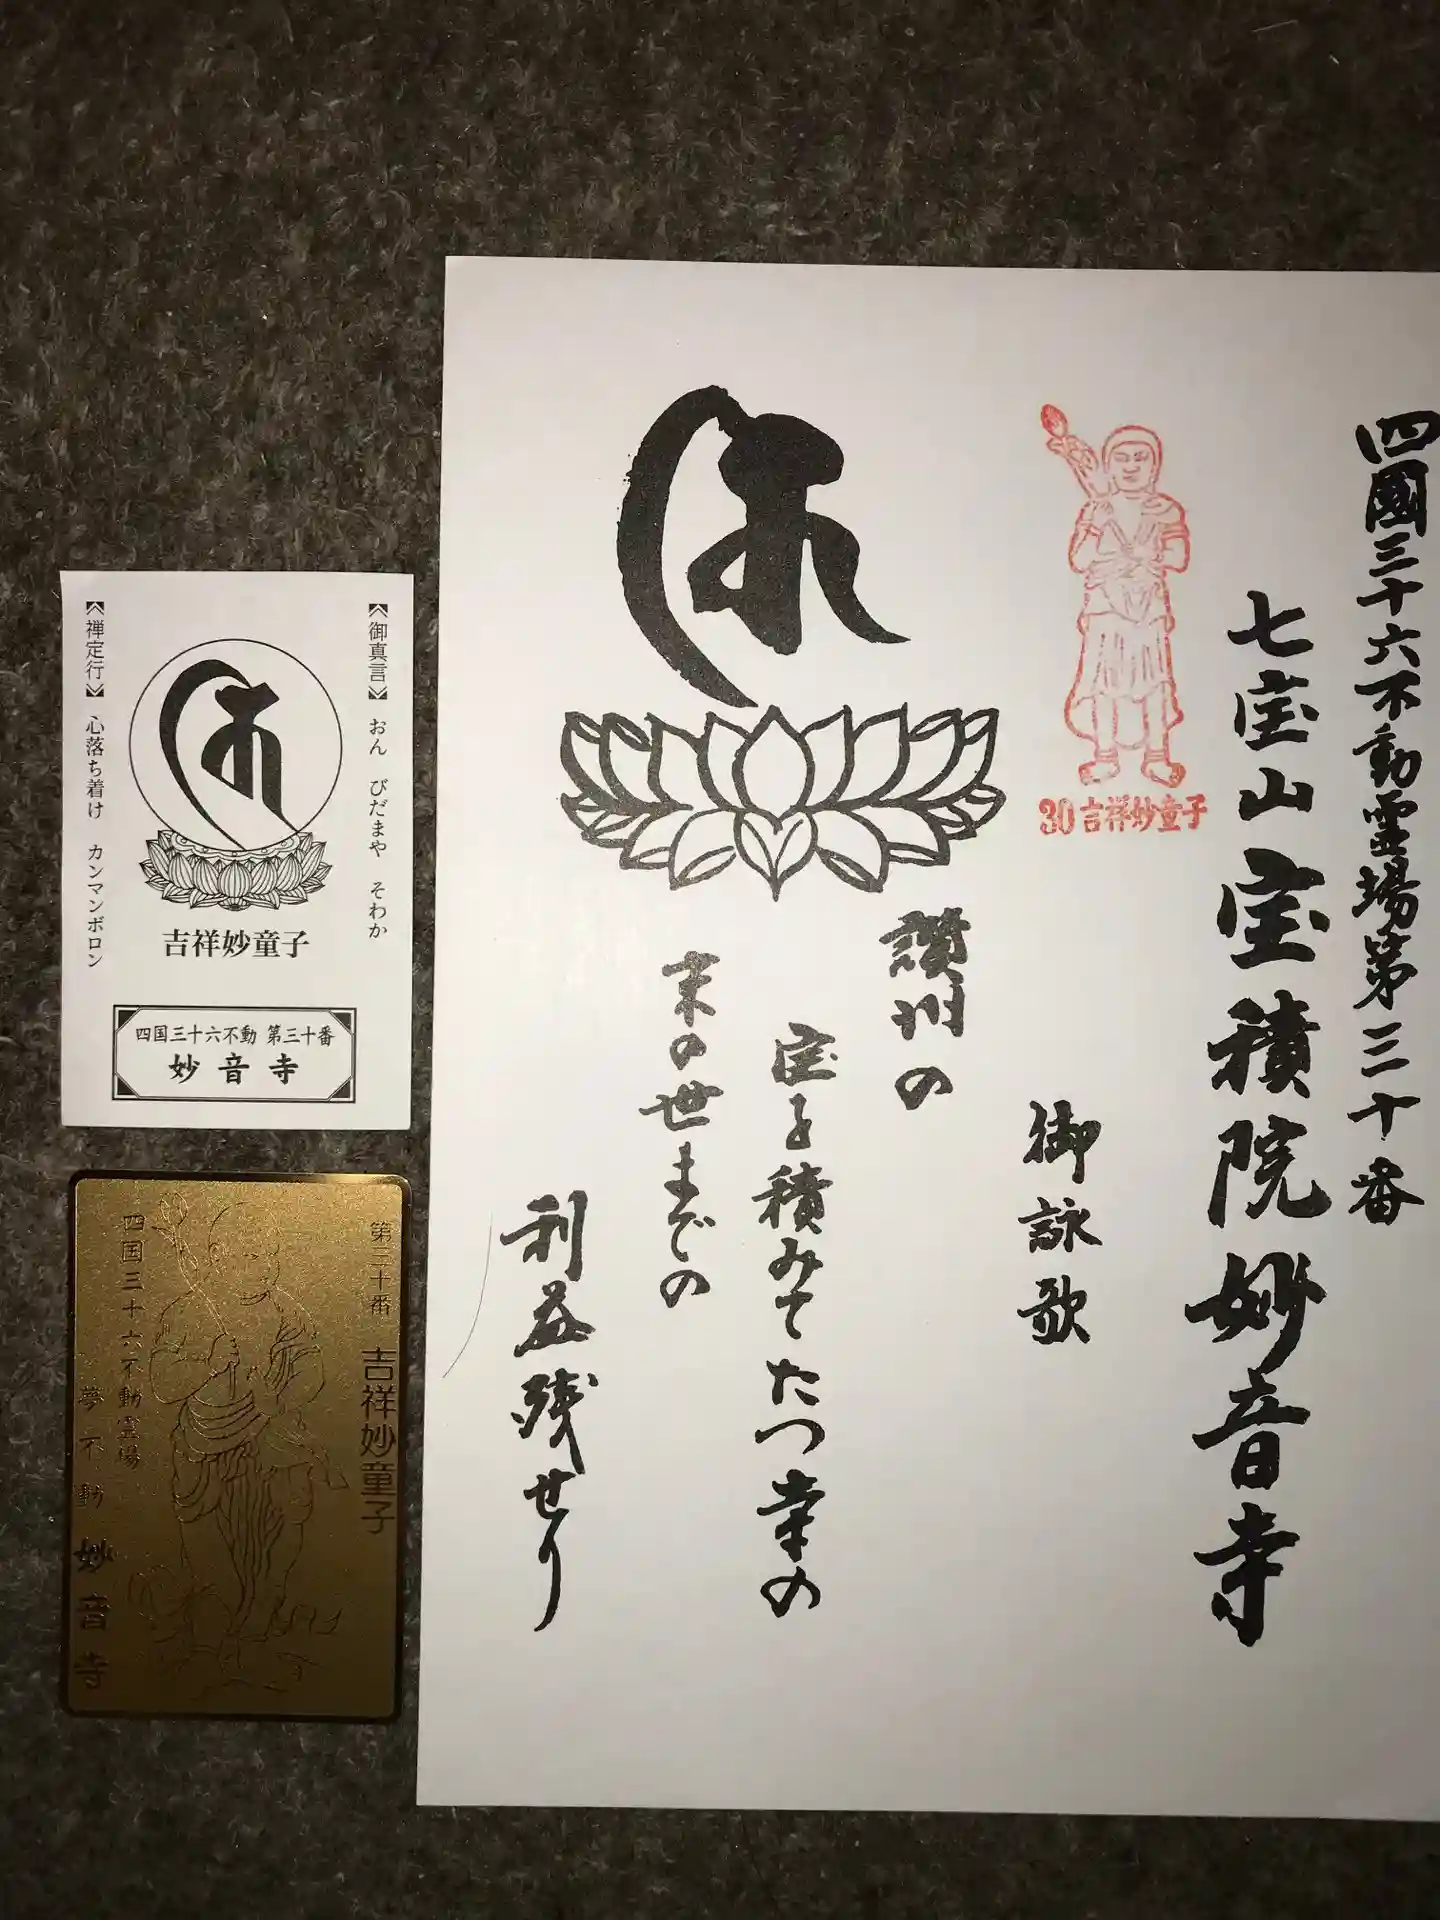 四國三十六不動霊場第三十番
七宝山宝積院妙音寺
30吉祥妙童子
御詠歌
讃州の
宝を積みてたつ寺の
末の世までの
利益残せり
《御真言》 おん びだまや そわか
《禅定行》 心落ち着け カンマンボロン
吉祥妙童子
四国三十六不動 第三十番
妙音寺
第三十番 吉祥妙童子
四国三十六不動霊場
夢不動 妙音寺